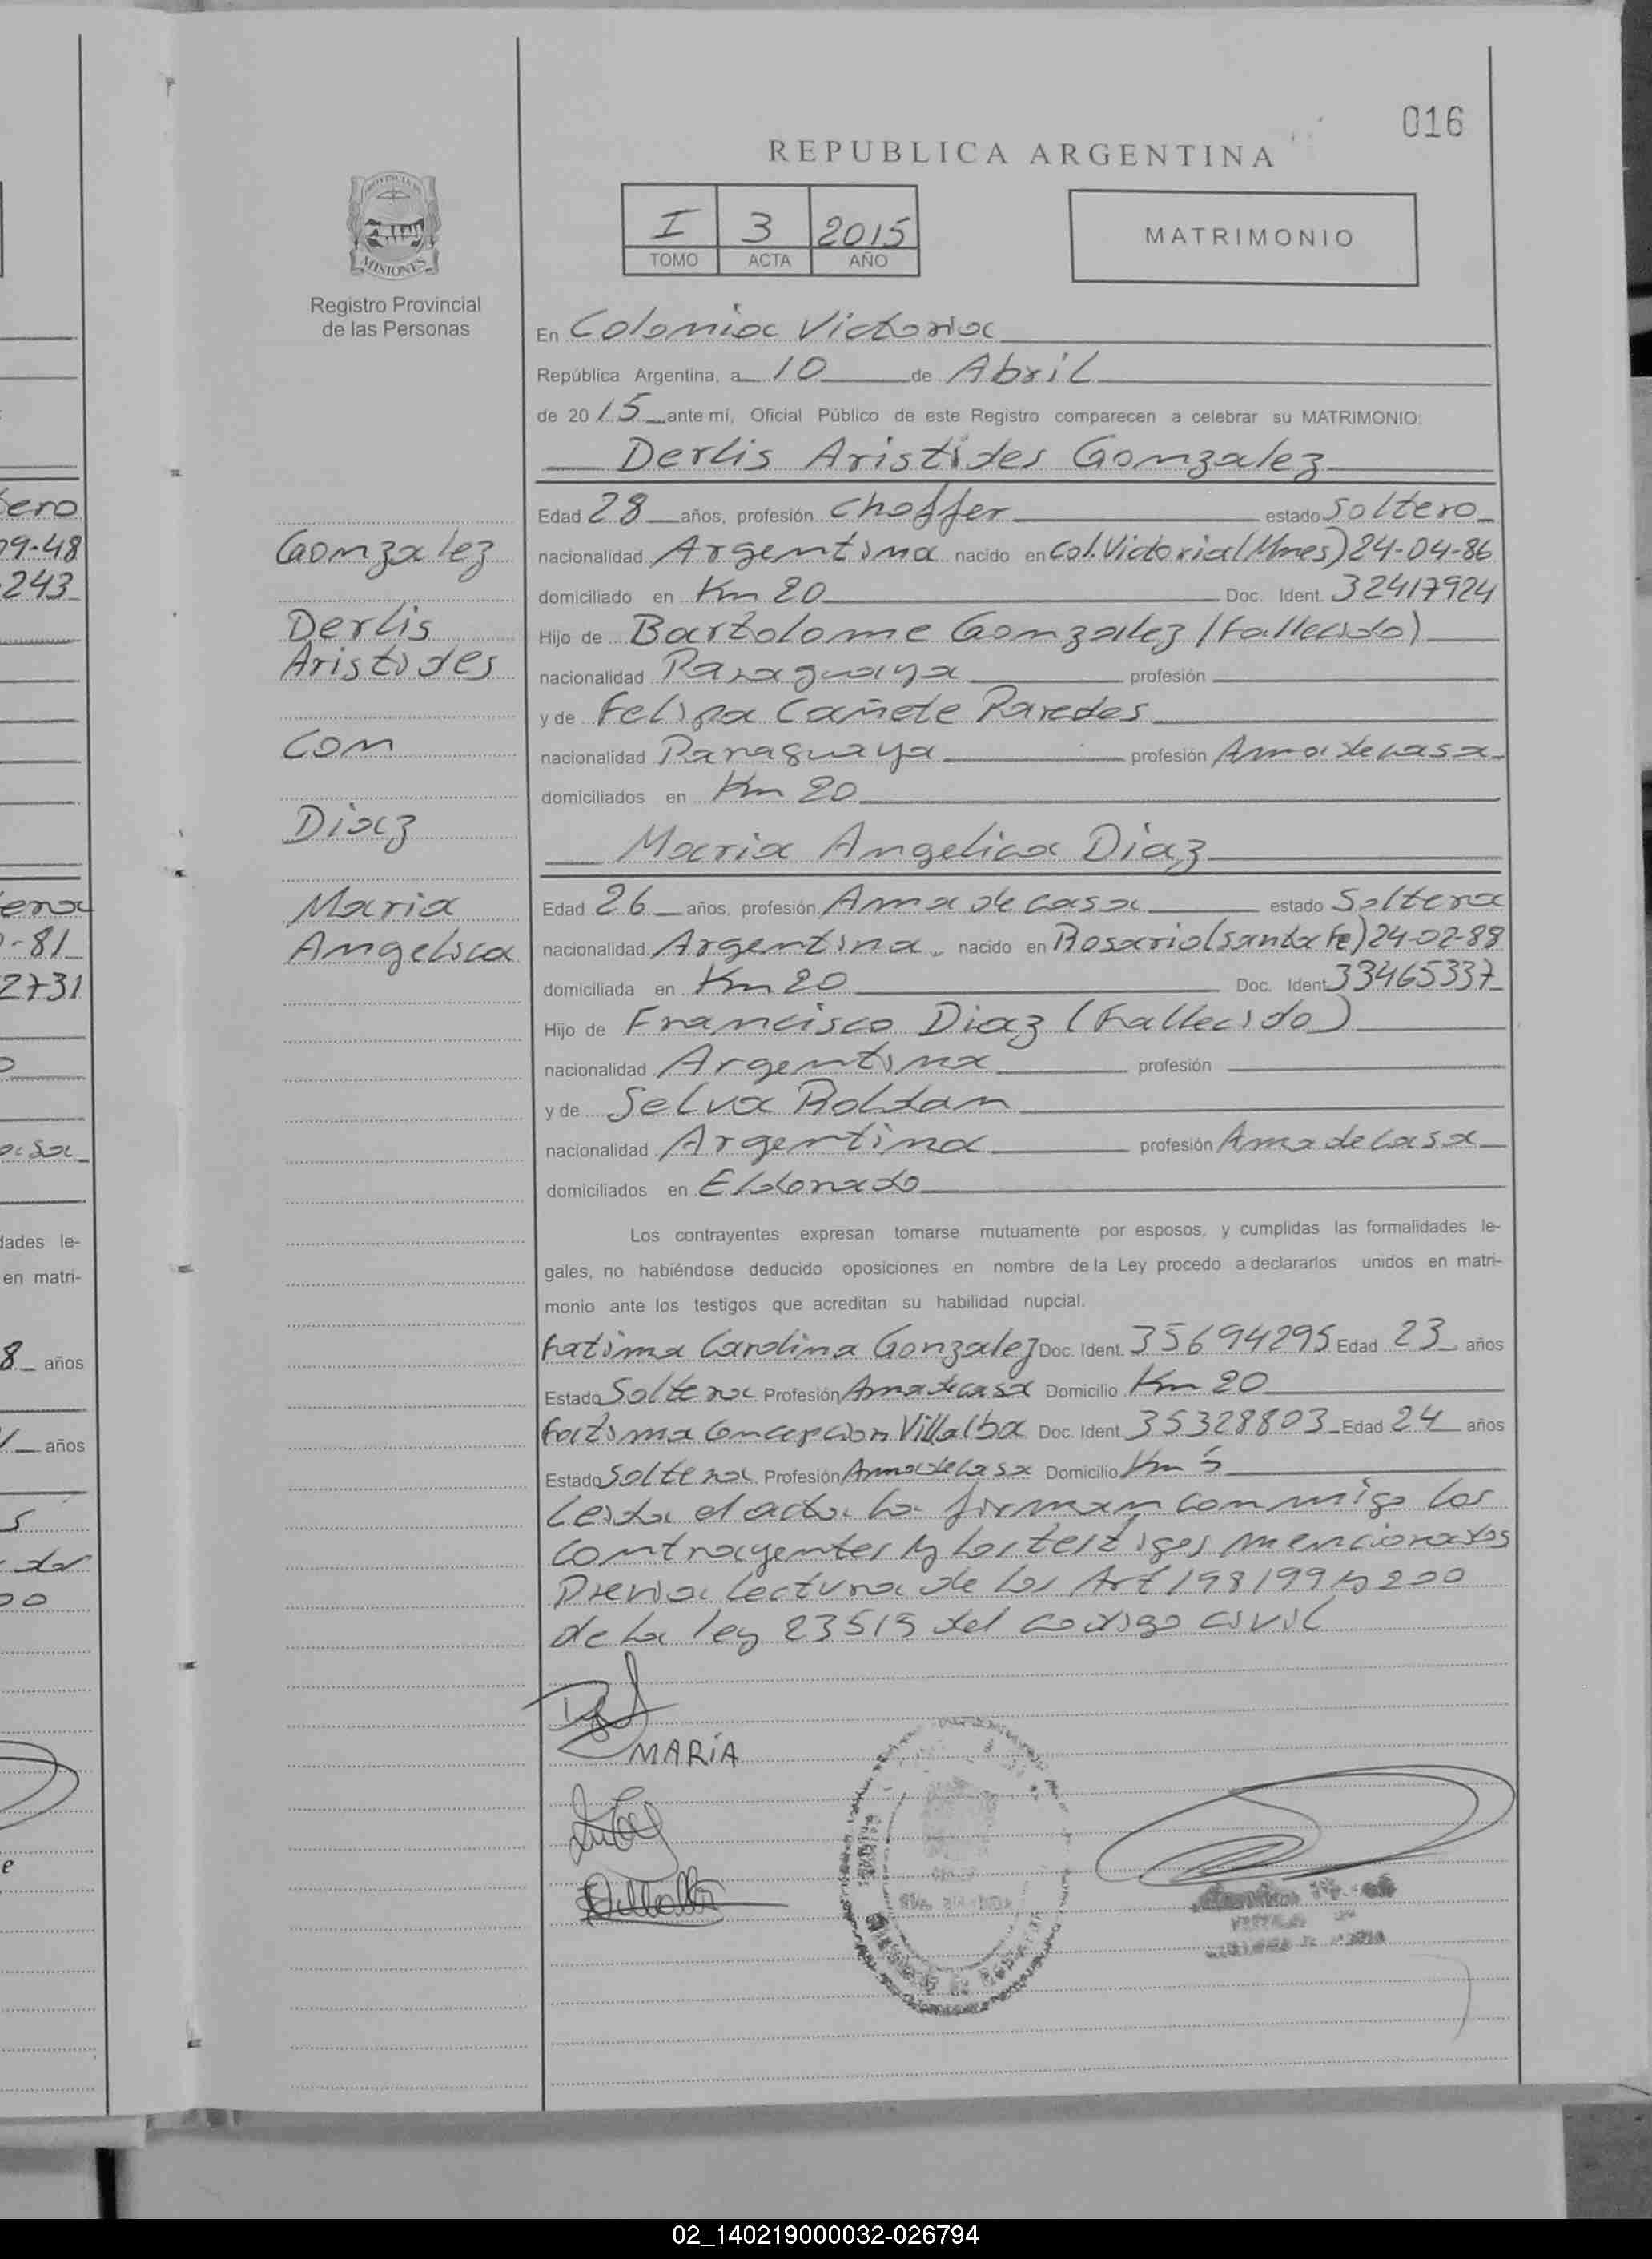 016
REPUBLICA ARGENTINA
I 3 2015
TOMO ACTA AÑO
MATRIMONIO
PROVINCIA DE
MISIONES
Registro Provincial
de las Personas
En Colonia Victoria
República Argentina, a 10 de Abril
de 2015 ante mí, Oficial Público de este Registro comparecen a celebrar su MATRIMONIO:
Derlis Aristides Gonzalez
Edad 28 años, profesión choffer estado Soltero
nacionalidad Argentina nacido en Col. Victoria (Mnes) 24-04-86
domiciliado en Km 20 Doc. Ident. 32417924
Hijo de Bartolome Gonzalez (Fallecido)
nacionalidad Paraguaya profesión
y de Felipa Cañete Paredes
nacionalidad Paraguaya profesión Ama de casa
domiciliados en Km 20
Maria Angelica Diaz
Edad 26 años, profesión Ama de casa estado Soltera
nacionalidad Argentina nacido en Rosario (Santa Fe) 24-02-89
domiciliada en Km 20 Doc. Ident. 33465337
Hijo de Francisco Diaz (Fallecido)
nacionalidad Argentina profesión
y de Selva Roldan
nacionalidad Argentina profesión Ama de casa
domiciliados en Eldorado
Los contrayentes expresan tomarse mutuamente por esposos, y cumplidas las formalidades le-
gales, no habiéndose deducido oposiciones en nombre de la Ley procedo a declararlos unidos en matri-
monio ante los testigos que acreditan su habilidad nupcial.
Fatima Carolina Gonzalez Doc. Ident. 35694295 Edad 23 años
Estado Soltera Profesión Ama de casa Domicilio Km 20
Fatima Concepcion Villalba Doc. Ident. 35328803 Edad 24 años
Estado Soltera Profesión Ama de casa Domicilio Km 5
Leida el acta la firman conmigo los
contrayentes y los testigos mencionados
Previa lectura de los Art 198 199 y 200
de la ley 23515 del codigo civil
MARIA
Gonzalez
Derlis
Aristides
Con
Diaz
Maria
Angelica
ero
09-48
243
ena
-81
2731
asa
dades le-
en matri-
8 años
años
02_140219000032-026794